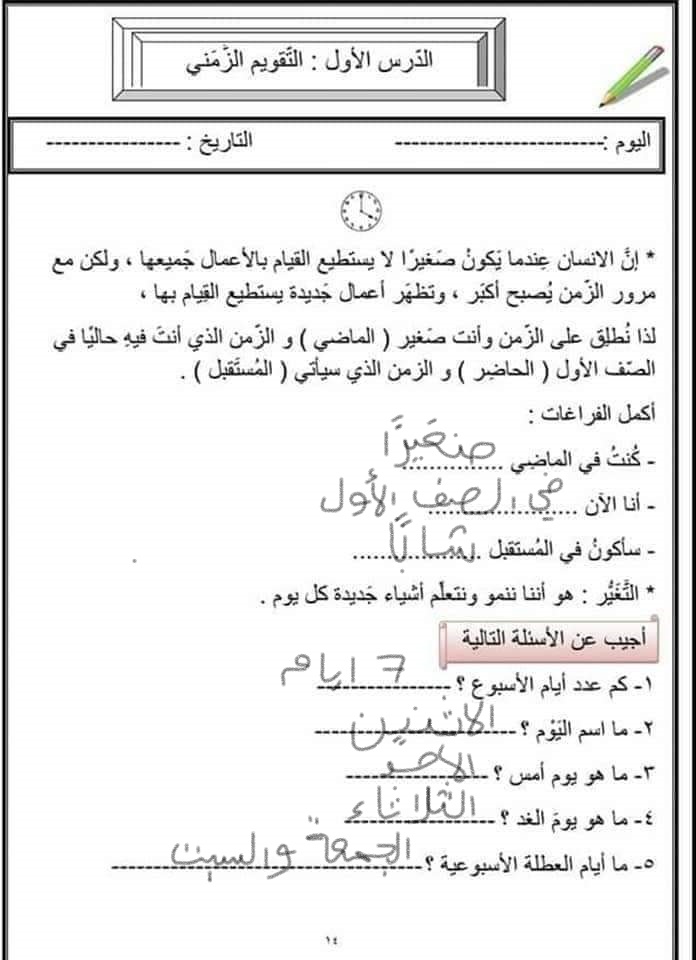 الدّرس الأول : التّقويم الزّمَني
اليوم :------------------------- التاريخ : ----------------
* إنَّ الانسان عِندما يَكونُ صَغيرًا لا يستطيع القيام بالأعمال جَميعها ، ولكن مع
مرور الزّمن يُصبح أكبَر ، وتظهَر أعمال جَديدة يستطيع القِيام بها ،
لذا نُطلِق على الزّمن وأنت صَغير ( الماضي ) و الزّمن الذي أنتَ فيهِ حاليًا في
الصّف الأول ( الحاضِر ) و الزمن الذي سيأتي ( المُستَقبل ) .
أكمل الفراغات :
- كُنتُ في الماضِي صغَيرًا
- أنا الآن في الصف الأول
- سأكونُ في المُستقبل شابًا
* التَّغَيُّر : هو أننا ننمو ونتعلّم أشياء جَديدة كل يوم .
أجيب عن الأسئلة التالية
١- كم عدد أيام الأسبوع ؟ 7 ايام
٢- ما اسم اليَوْم ؟ الاثنين
٣- ما هو يوم أمس ؟ الأحد
٤- ما هو يومَ الغد ؟ الثلاثاء
٥- ما أيام العطلة الأسبوعية ؟ الجمعة والسبت
١٤